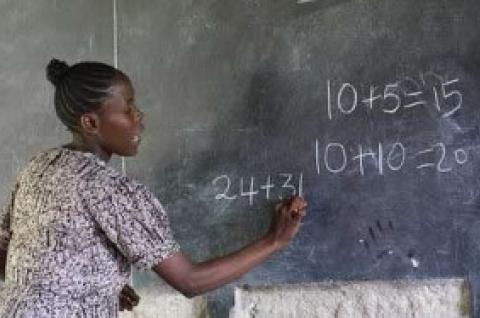 10+5=15
10+10=20
24+31